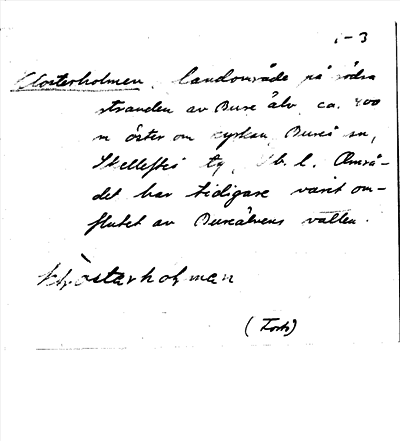 1-3
Klosterholmen, landområde på södra
stranden av Bure älv ca. 400
m öster om kyrkan, Bureå sn,
Skellefteå tg, Vb. l. Områ-
det har tidigare varit om-
flutet av Bureälvens vatten.
(Fork)